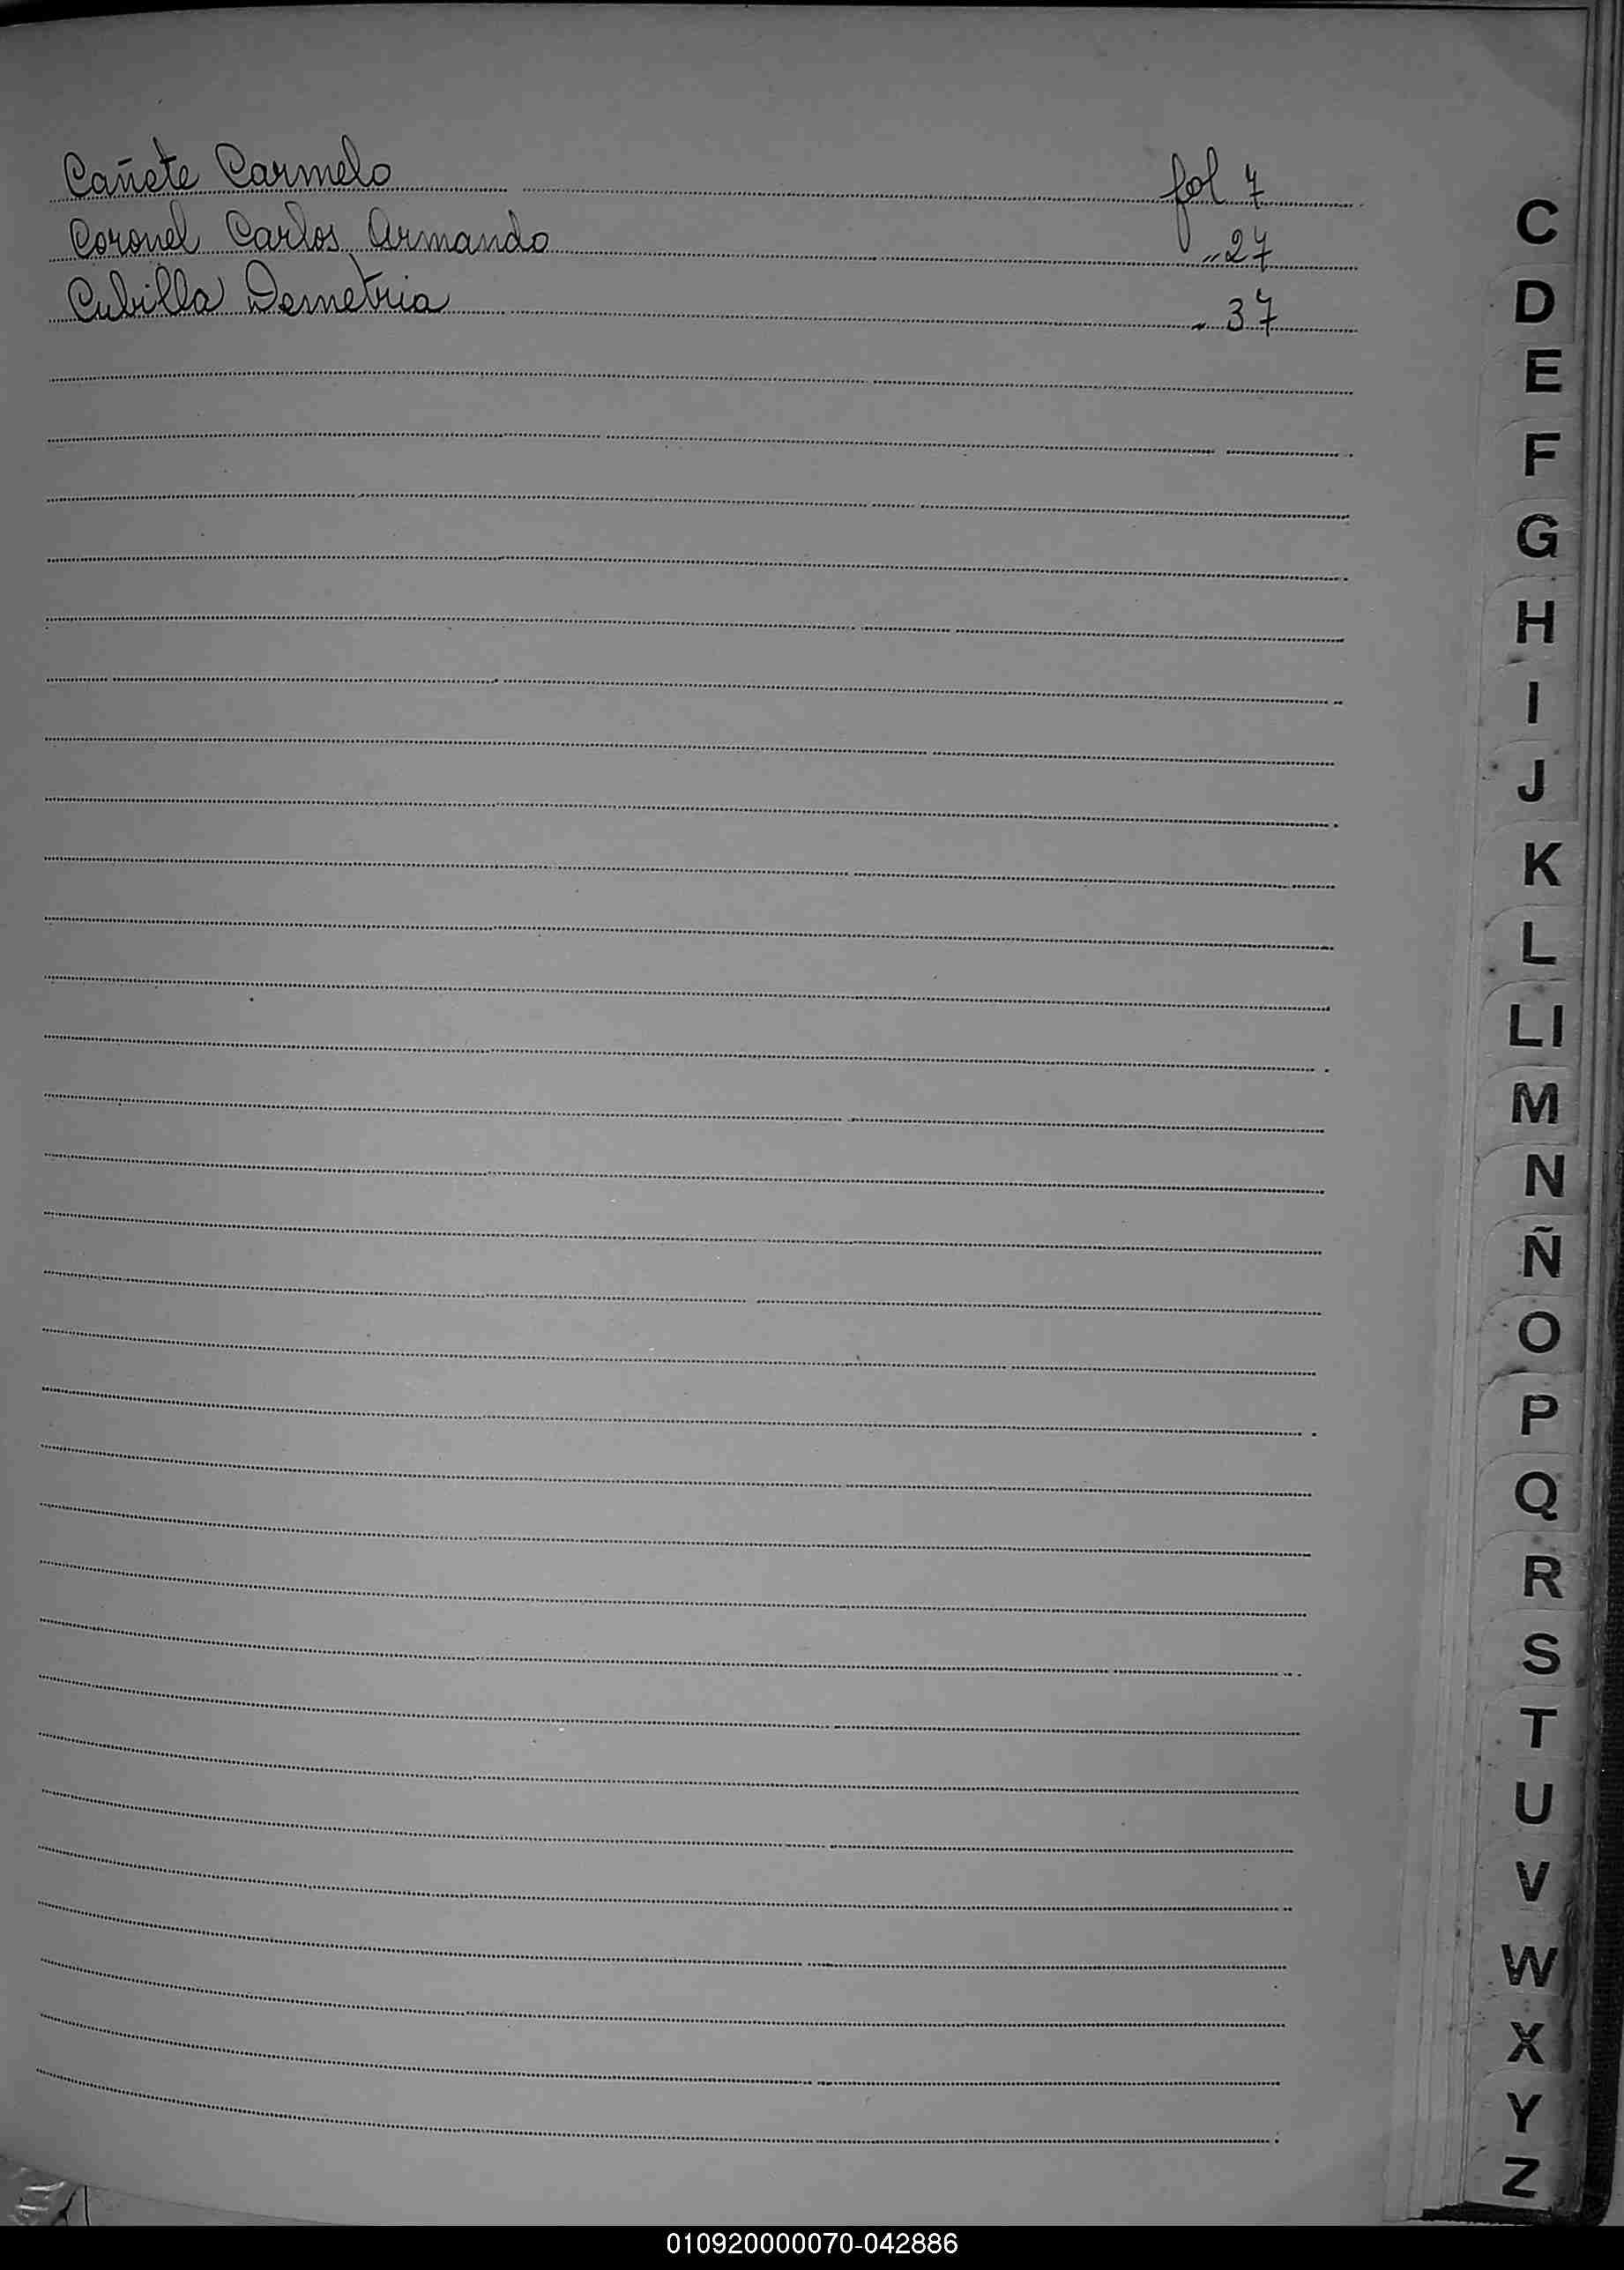 Cañete Carmelo fol 7
Coronel Carlos Armando " 27
Cubilla Demetria " 37
C
D
E
F
G
H
I
J
K
L
Ll
M
N
Ñ
O
P
Q
R
S
T
U
V
W
X
Y
Z
010920000070-042886